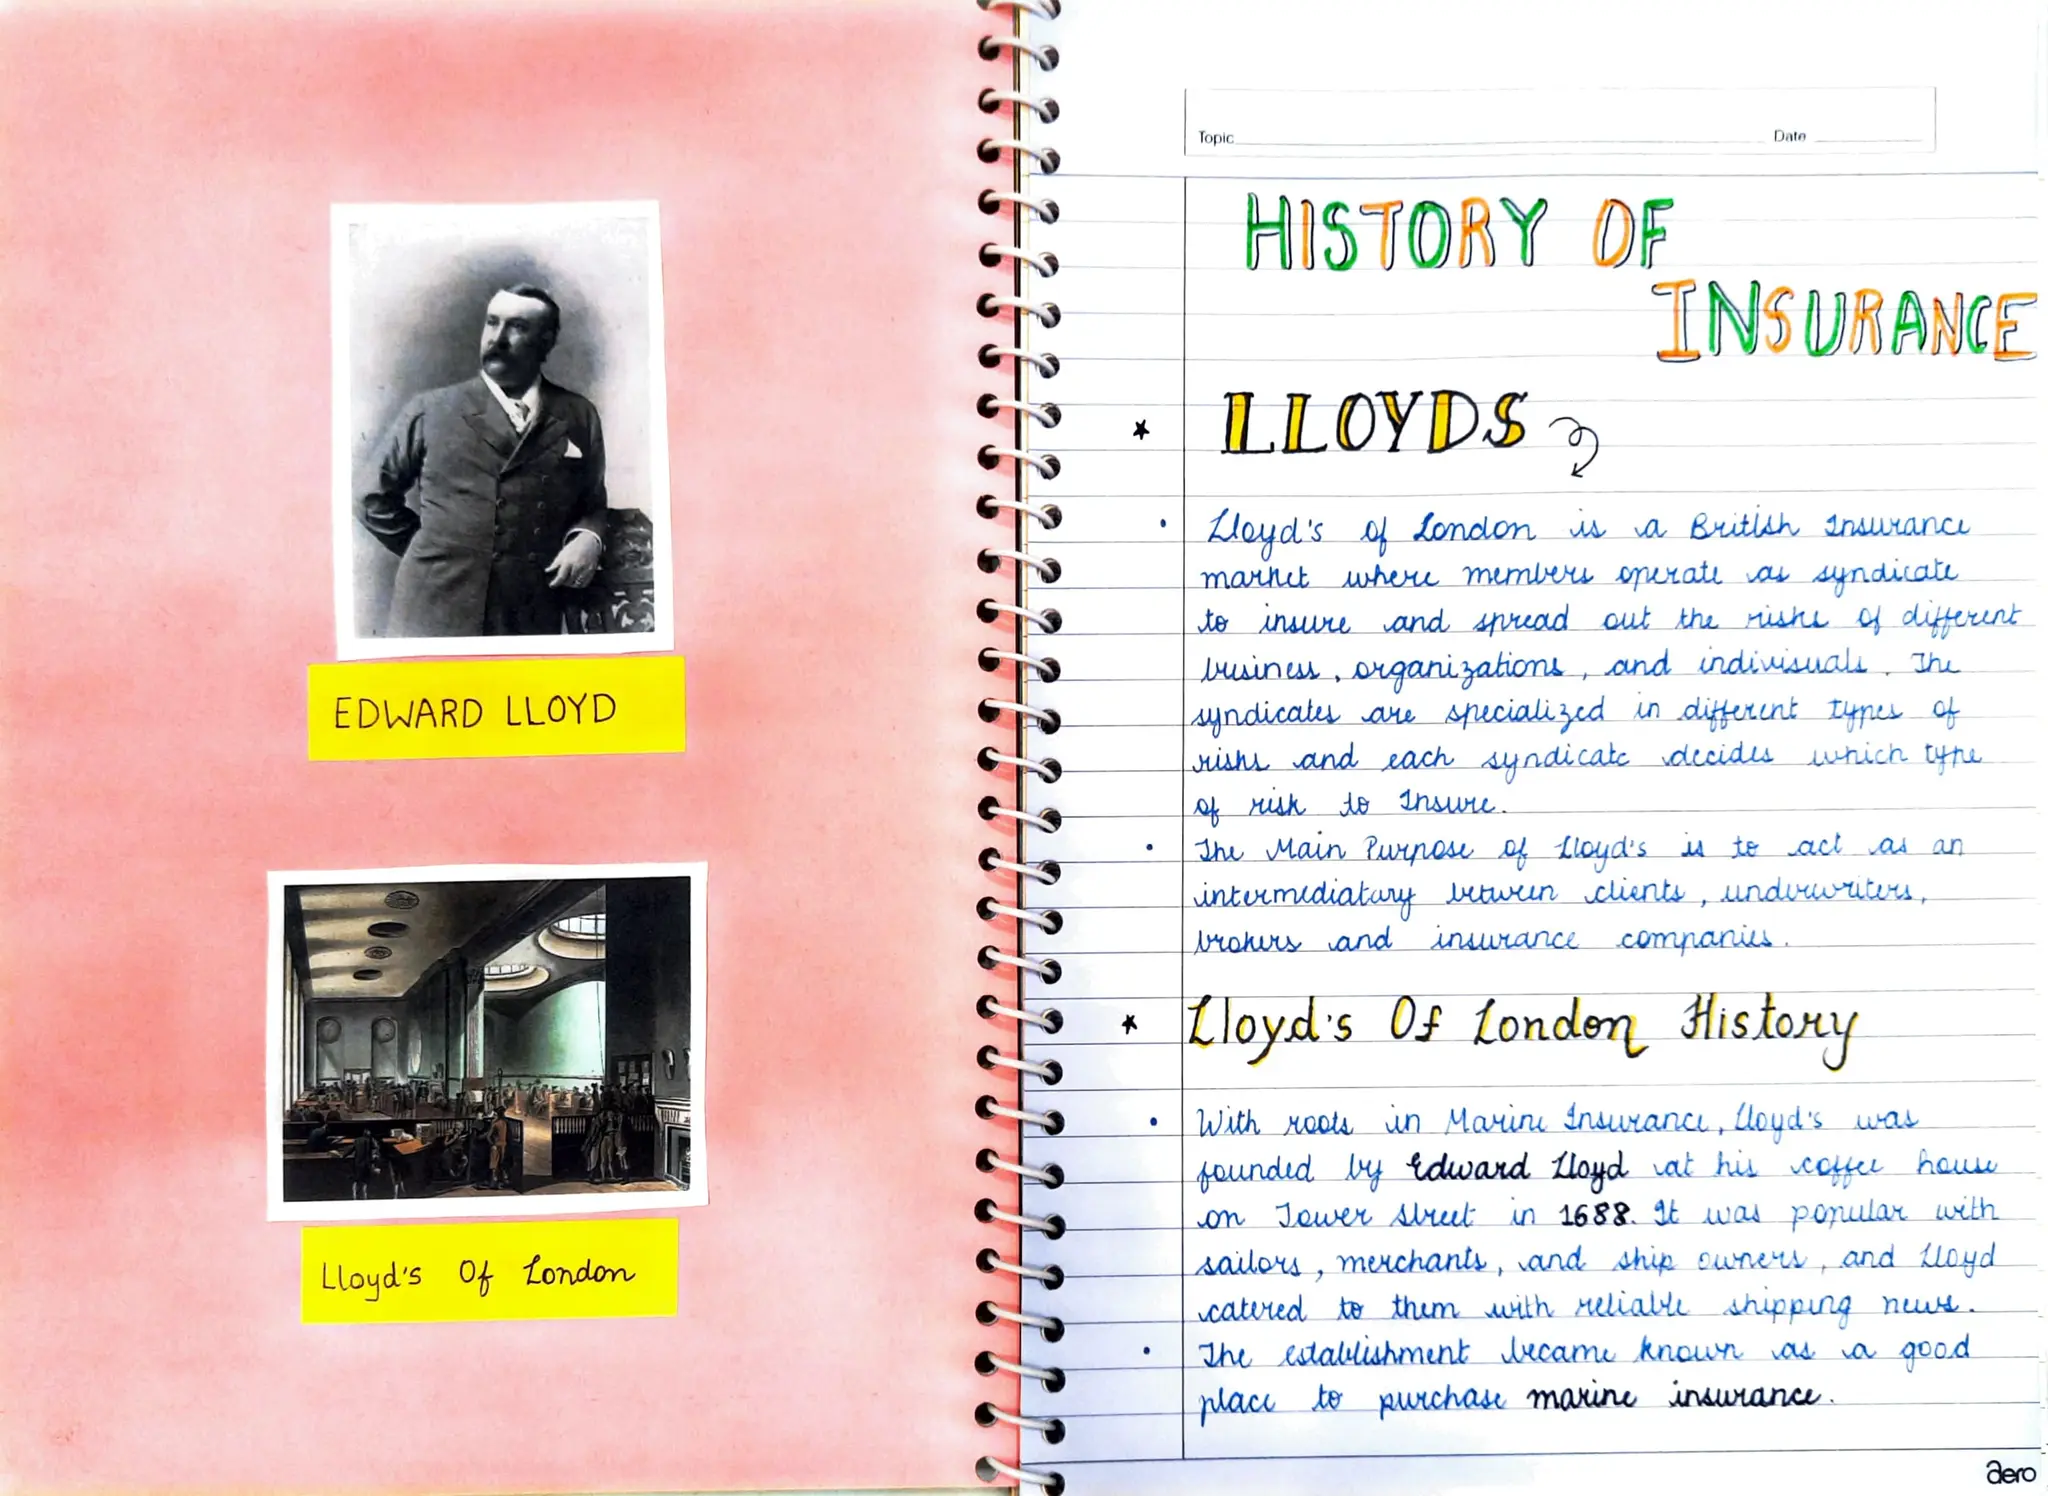 EDWARD LLOYD
Lloyd's Of London
Topic
Date
HISTORY OF
INSURANCE
LLOYDS
Lloyd's of London is a British Insurance
market where members operate as syndicate
to insure and spread out the risks of different
business, organizations, and indivisuals. The
syndicates are specialized in different types of
risks and each syndicate decides which type
of risk to Insure.
The Main Purpose of Lloyd's is to act as an
intermediatary between clients, underwriters,
brokers and insurance companies.
Lloyd's Of London History
With roots in Marine Insurance, Lloyd's was
founded by Edward Lloyd at his coffee house
on Tower Street in 1688. It was popular with
sailors, merchants, and ship owners, and Lloyd
catered to them with reliable shipping news.
The establishment became known as a good
place to purchase marine insurance.
aero